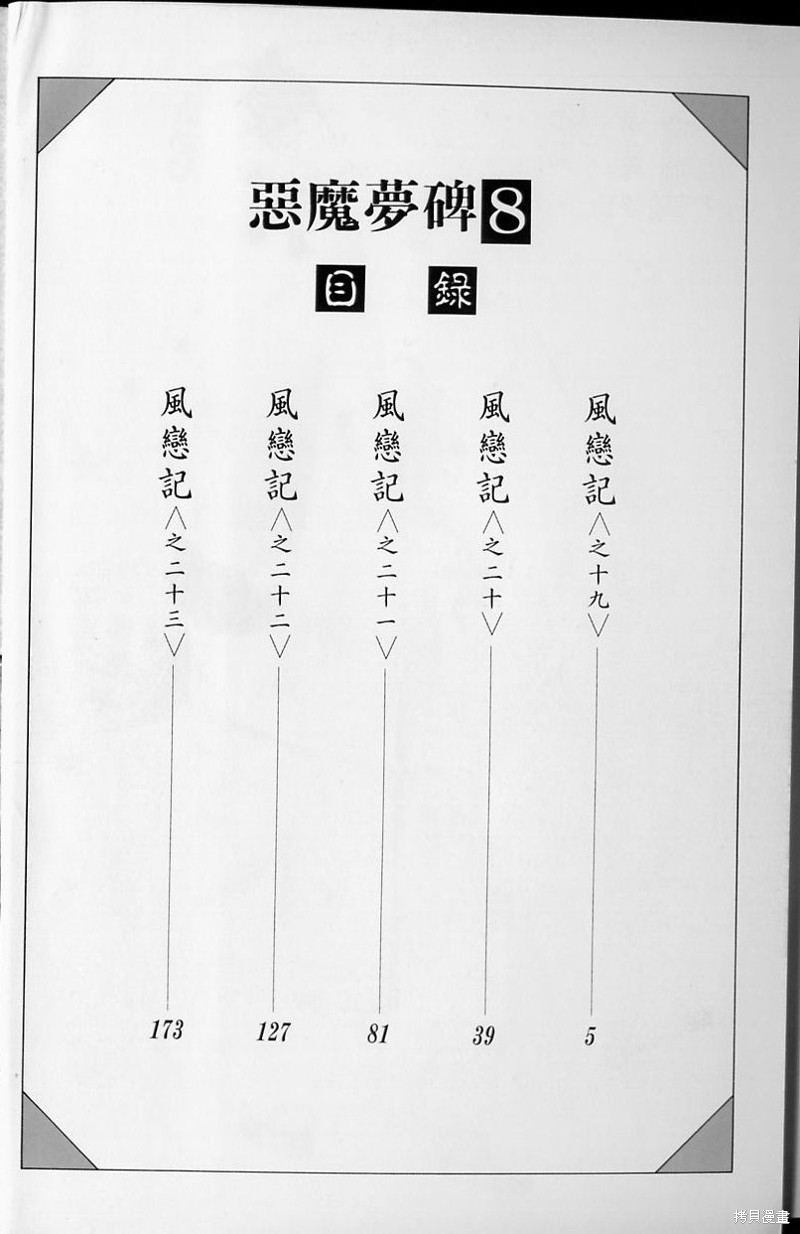 惡魔夢碑8
目錄
風戀記〈之十九〉 5
風戀記〈之二十〉 39
風戀記〈之二十一〉 81
風戀記〈之二十二〉 127
風戀記〈之二十三〉 173
拷貝漫畫